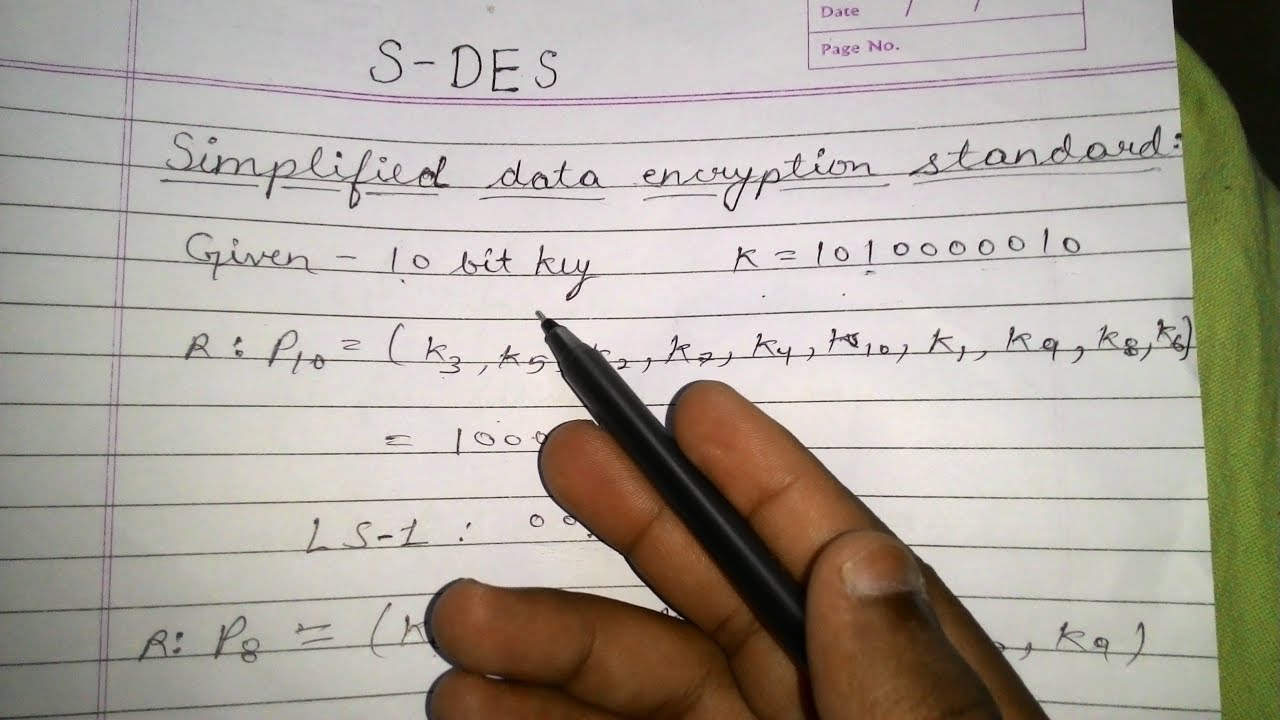 Date / /
Page No.
S-DES
Simplified data encryption standard:
Given - 10 bit key K = 1010000010
R: P10 = (k3, k5, k2, k7, k4, k10, k1, k9, k8, k6)
= 100
LS-1 : 00
R: P8 = (k , k9)